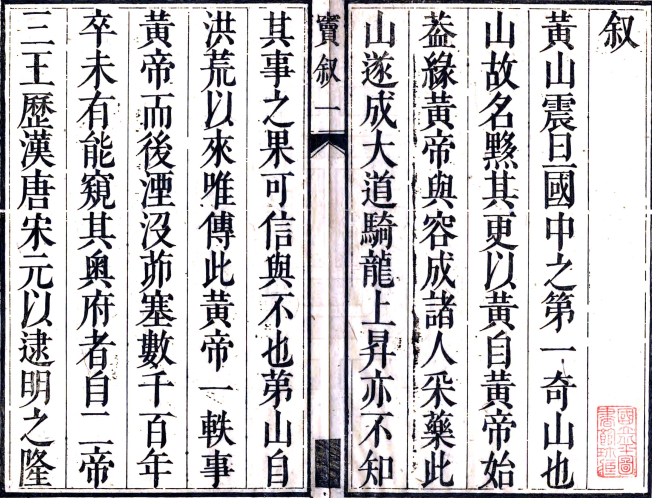 叙
黃山震旦國中之第一奇山也
山故名黟其更以黃自黃帝始
葢緣黃帝與容成諸人采藥此
山遂成大道騎龍上昇亦不知
竇叙一
其事之果可信與不也第山自
洪荒以來唯傳此黃帝一軼事
黃帝而後湮沒茆塞數千百年
卒未有能窺其奧府者自二帝
三王歷漢唐宋元以逮明之隆